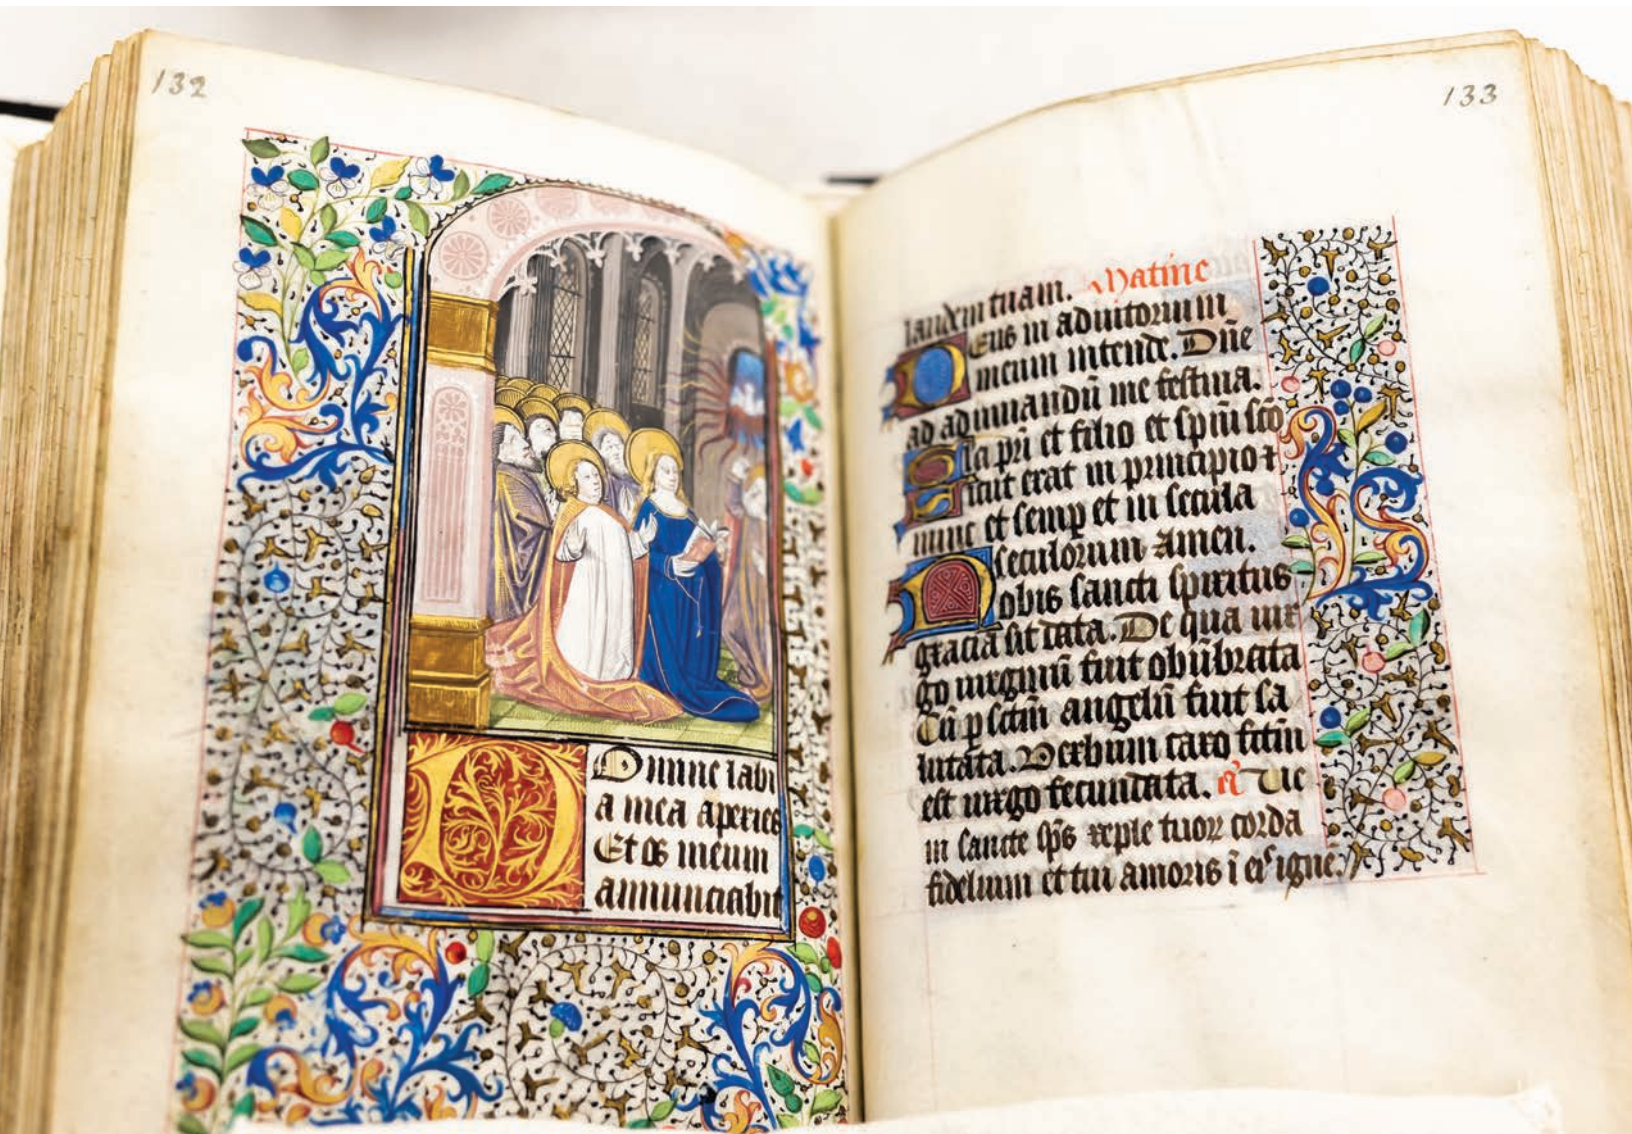 132
Domine labi
a mea aperies
Et os meum
annunciabit
133
laudem tuam. Matine
Deus in adiutorium
meum intende. Dñe
ad adiuuandũ me festina.
Gl̃a pr̃i et filio et spũi sc̃o
Sicut erat in principio ⁊
nunc et semp et in secula
seculorum amen.
Nobis sancti spiritus
gracia sit data. De qua uir
go uirginũ fuit obũbrata
Cũ p sc̃m angelũ fuit sa
lutata. Verbum caro fc̃m
est uirgo fecundata. añ Ue
ni sancte sp̃s reple tuoꝝ corda
fidelium et tui amoris ĩ eiˢ ignẽ.